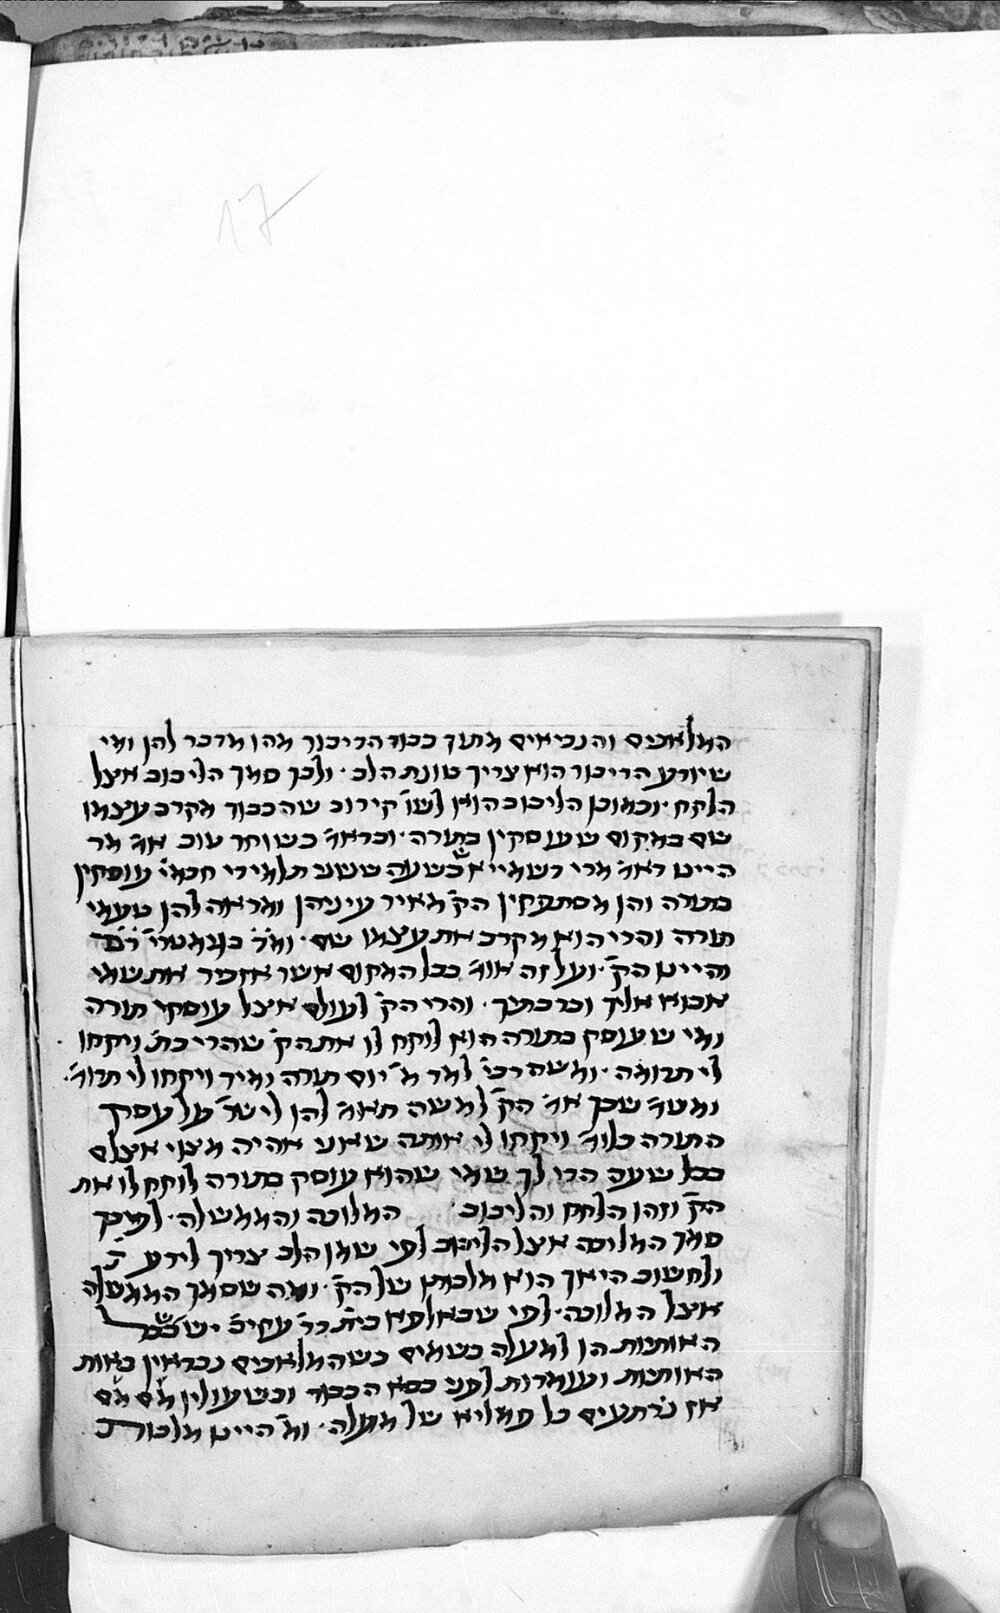 17
המלאכים והנביאים מתוך כבוד הדיבור מהו מדבר להן ומי
שיודע הדיבור הוא צריך כוונת הלב · ולכך סמך הליבוב אצל
הלקח · וכמוכן הליבוב הוא לשו׳ קירוב שהכבוד מקרב עצמו
שם במקום שעוסקין בתורה · וכדאמ׳ כשותר טוב אמ׳ מר
היינו דאמ׳ מרי דשמייא בשעה ששני תלמידי חכמי׳ עוסקין
בתורה והן מסתפקין הק׳ מאיר עיניהן ומראה להן טעמי
תורה והרי הוא מקרב את עצמו שם · ומ״ר בגימטרי׳
והיינו הק׳ · ועל זה אומ׳ בכל המקום אשר אזכיר את שמי
אבוא אליך וברכתיך · והרי הק׳ לעולם אצל עוסקי תורה
ומי שעוסק בתורה הוא לוקח לו את הק׳ שהרי כת׳ ויקחו
לי תרומה · ומשה רבי׳ למד מ׳ יום תורה ומיד ויקחו לי תרומ׳ ·
ומטע׳ שכך אמ׳ הק׳ למשה תאמ׳ להן לישר׳ על עסק
התורה כלומ׳ ויקחו לי אותה שאני אהיה מצוי אצלם
בכל שעה הרי לך שמי שהוא עוסק בתורה לוקח לו את
הק׳ וזהו הלקח והליבוב · המלוכה והממשלה · לפיכך
סמך המלוכה אצל הליבוב לפי שמן הלב צריך לידע
ולחשוב היאך הוא מלכותו של הק׳ · ומה שסמך הממשלה
אצל המלוכה · לפי שבאלפא בית דר׳ עקיב׳ יש שכל
האותיות הן למעלה בשמים כשהמלאכים נבראין באות
האותיות ועומדות לפני כסא הכבוד וכשעולין מ׳ם מ׳ם
אז נרתעים כל פמליא של מעלה · ומ׳ היינו מלכות